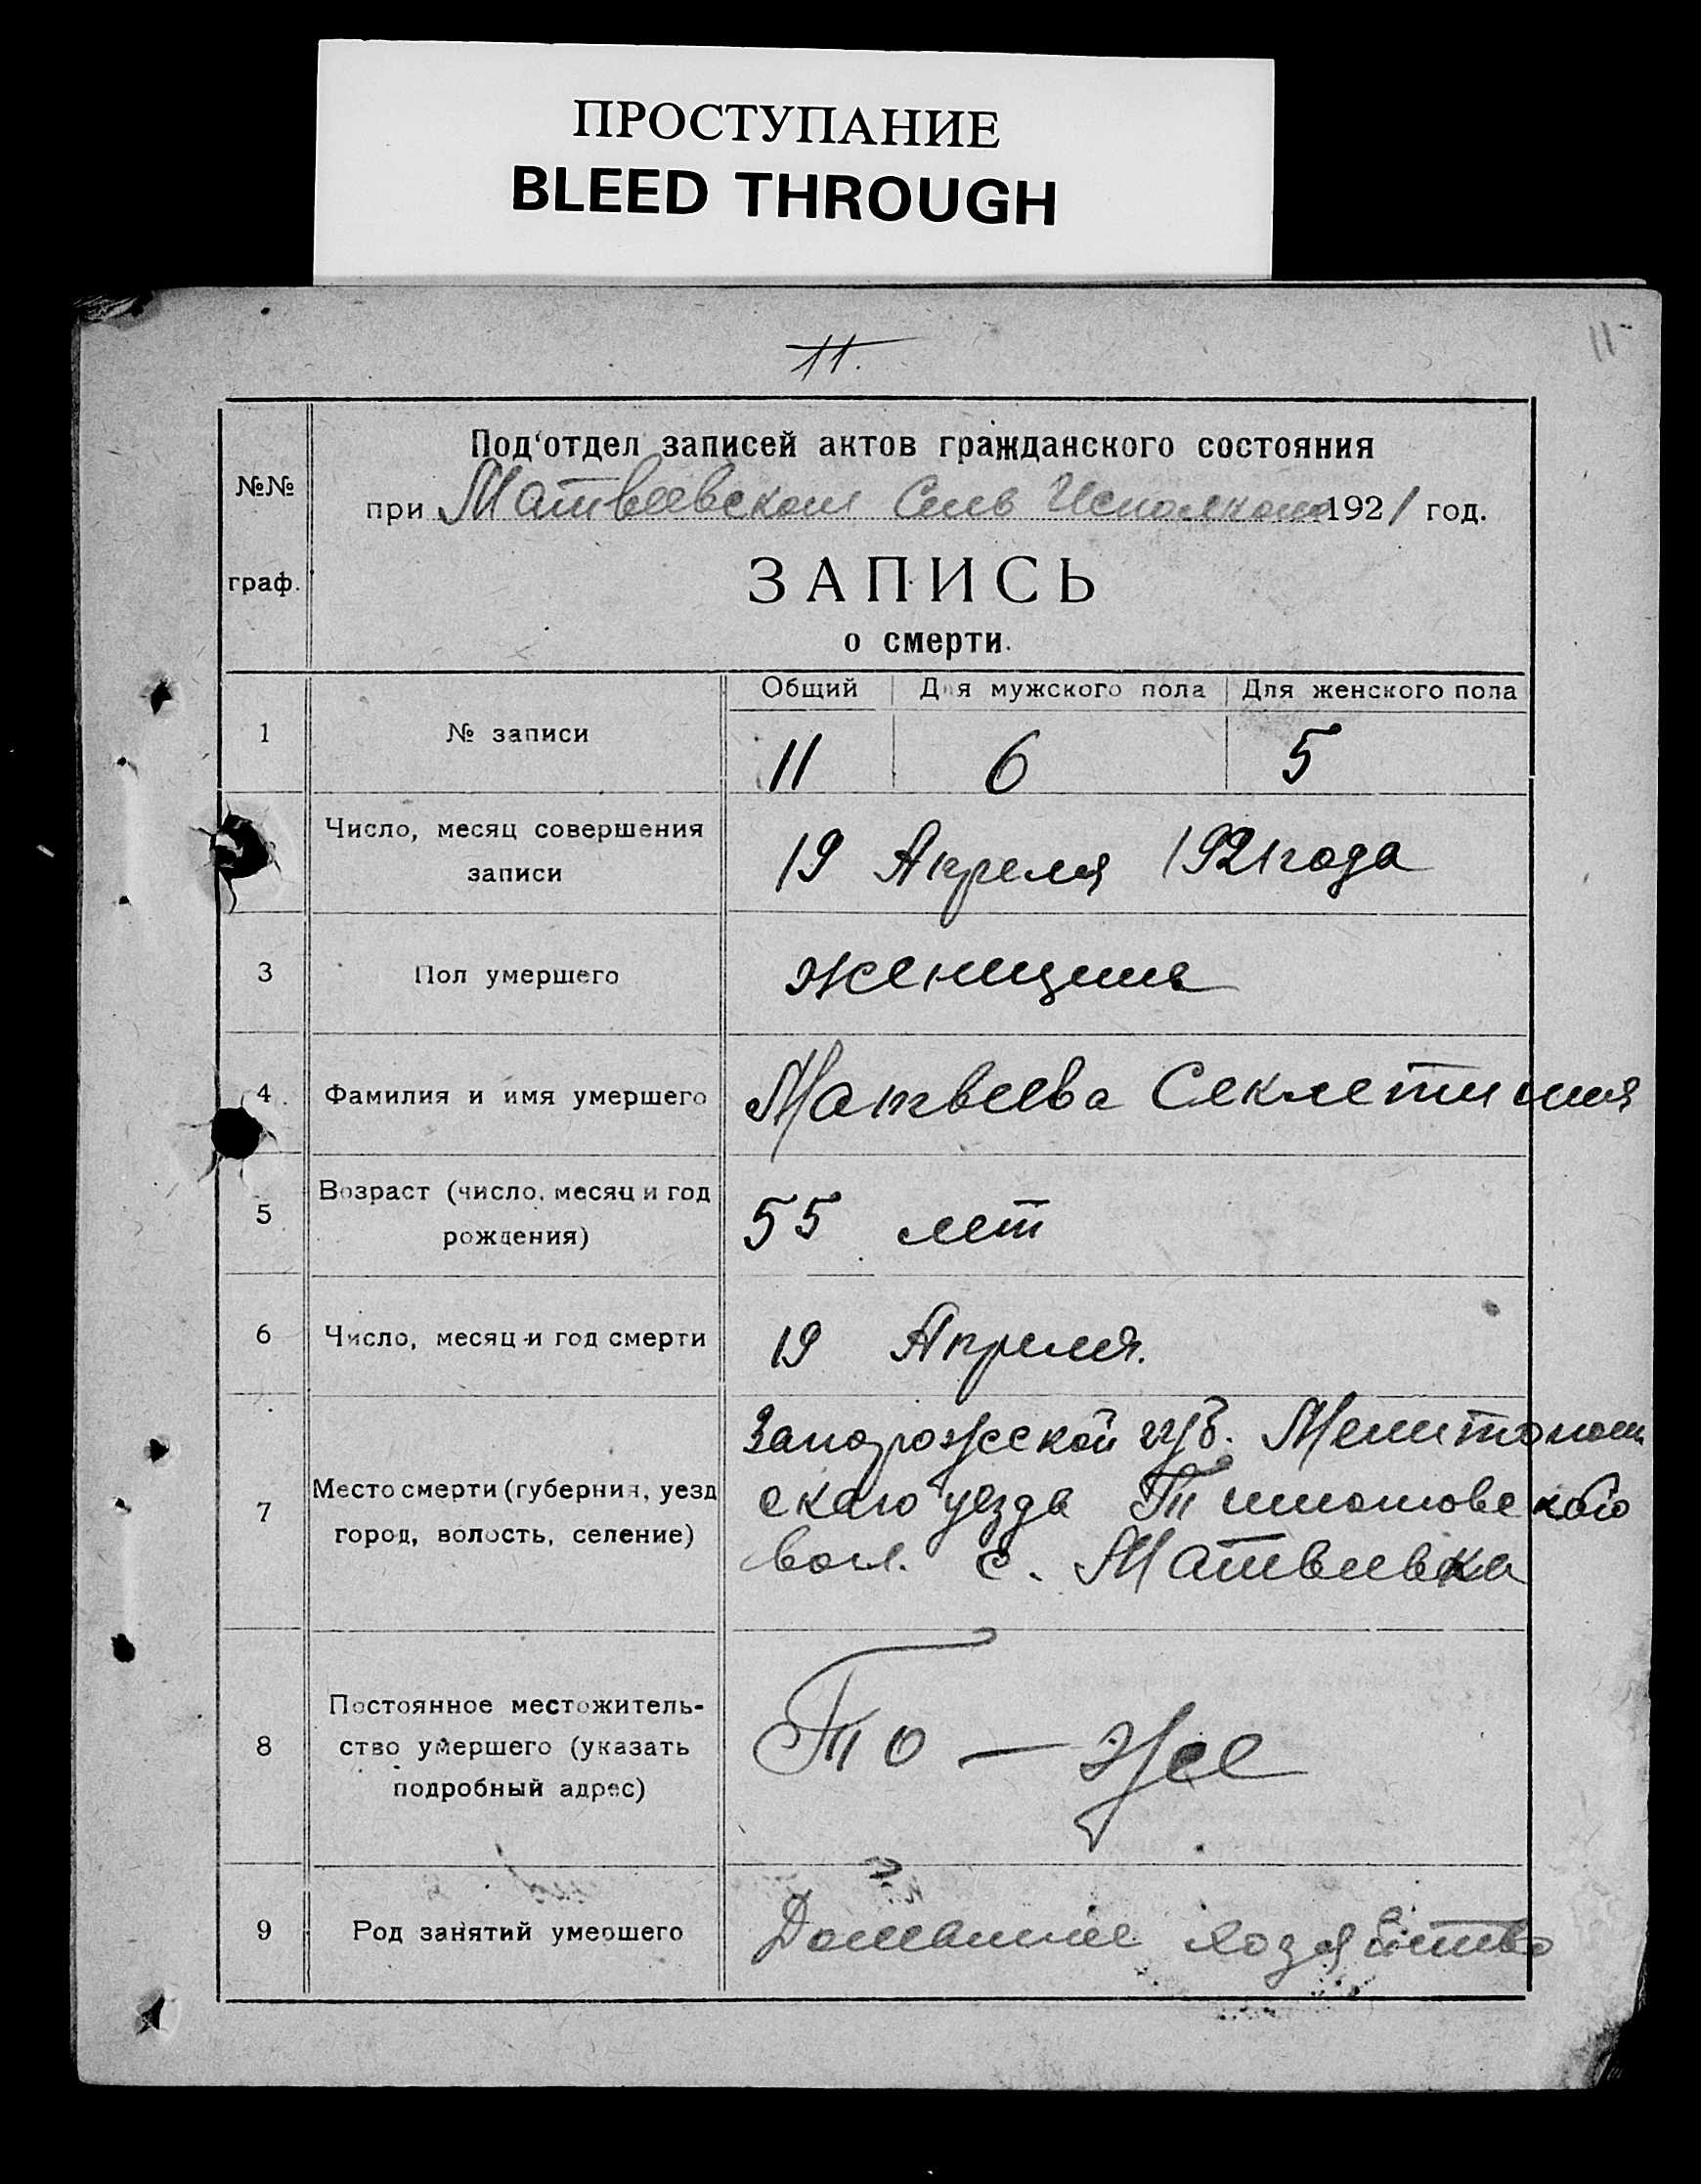 ПРОСТУПАНИЕ
BLEED THROUGH
11.
11
Под'отдел записей актов гражданского состояния
№№
при Матвеевском Сель Исполкоме 1921 год.
граф.
ЗАПИСЬ
о смерти.
Общий Для мужского пола Для женского пола
1 № записи 11 6 5
Число, месяц совершения
записи
19 Апреля 1921 года
3 Пол умершего женщина
4 Фамилия и имя умершего Матвеева Секлетиния
5 Возраст (число, месяц и год
рождения)
55 лет
6 Число, месяц и год смерти 19 Апреля.
7 Место смерти (губерния, уезд
город, волость, селение)
Запорожской губ. Мелитополь
ского уезда Тимошовского
вол. с. Матвеевка
8 Постоянное местожитель-
ство умершего (указать
подробный адрес)
То — же
9 Род занятий умершего Домашнее хозяйство